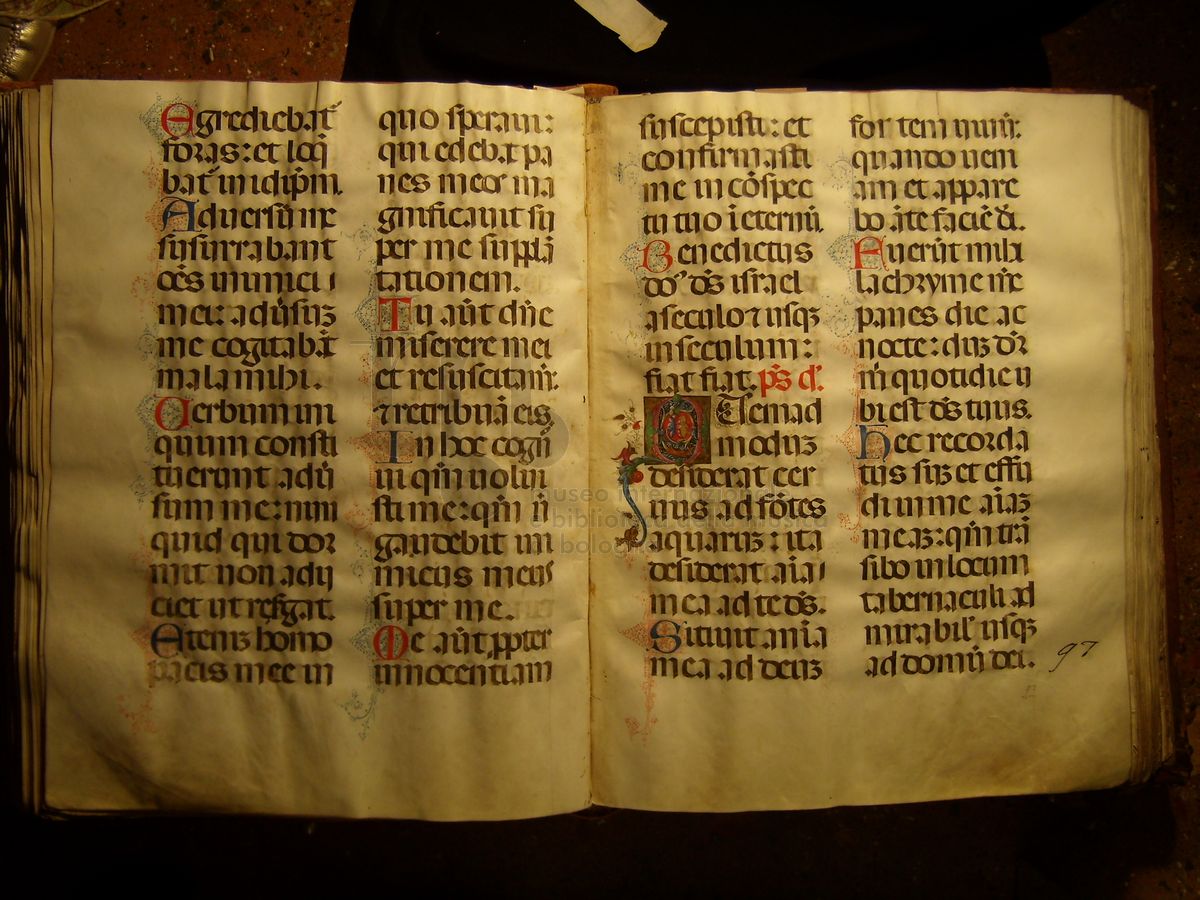 Egrediebat̄
foras: et loq̄
bat̄ in idip̄m.
Adversū me
susurrabant
oēs inimici
mei: adūsuȝ
me cogitabāt
mala mihi.
Verbum ini
quum consti
tuerunt adū
sum me: nun
quid qui dor
mit non adii
ciet ut resḡat.
Eteniȝ homo
pacis mee in
quo speravi:
qui edebat pa
nes meos ma
gnificavit su
per me supplā
tationem.
Tu aūt dn̄e
miserere mei
et resuscita m̄:
⁊ retribuā eis.
In hoc cogn̄
vi qm̄ volui
sti me: qm̄ n̄
gaudebit ini
micus meus
super me.
Me aūt ꝓpter
innocentiam
suscepisti: et
confirmasti
me in cōspec
tu tuo ī eternū.
Benedictus
do᷒ ds̄ israel
a seculo ⁊ usqȝ
in seculum:
fiat fiat. ps̄ d̄.
QUemad
moduȝ
desiderat cer
vus ad fōtes
aquaruȝ: ita
desiderat aīa
mea ad te ds̄.
Sitivit anīa
mea ad deuȝ
fortem vivū:
quando veni
am et appare
bo āte faciē d̄i.
Fuerūt mihi
lachryme me
panes die ac
nocte: duȝ dr̄
m̄ quotidie u
bi est ds̄ tuus.
Hec recorda
tus suȝ et effu
di in me aīaȝ
meaȝ: qm̄ trā
sibo in locum
tabernaculi ad
mirabil' usqȝ
ad domū dei.
97
museo internazionale
e biblioteca della musica
bologna